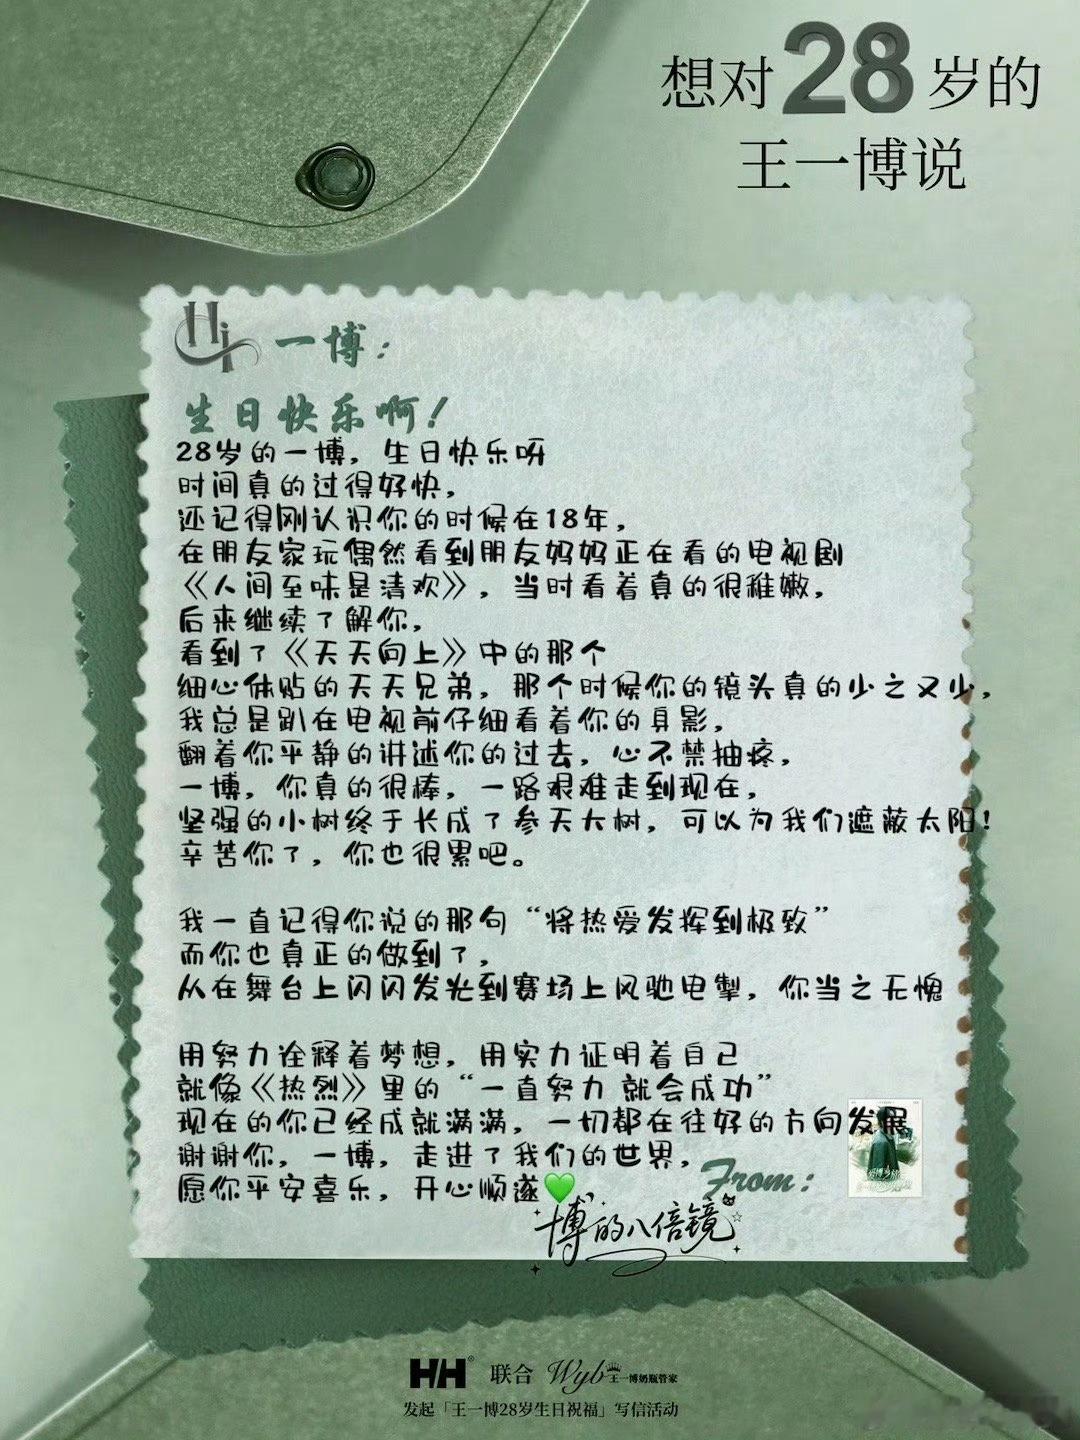 想对28岁的
王一博说
Hi 一博：
生日快乐啊！
28岁的一博，生日快乐呀
时间真的过得好快，
还记得刚认识你的时候在18年，
在朋友家玩偶然看到朋友妈妈正在看的电视剧
《人间至味是清欢》，当时看着真的很稚嫩，
后来继续了解你，
看到了《天天向上》中的那个
细心体贴的天天兄弟，那个时候你的镜头真的少之又少，
我总是趴在电视前仔细看着你的身影，
翻着你平静的讲述你的过去，心不禁抽疼，
一博，你真的很棒，一路艰难走到现在，
坚强的小树终于长成了参天大树，可以为我们遮蔽太阳！
辛苦你了，你也很累吧。
我一直记得你说的那句“将热爱发挥到极致”
而你也真正的做到了，
从在舞台上闪闪发光到赛场上风驰电掣，你当之无愧
用努力诠释着梦想，用实力证明着自己
就像《热烈》里的“一直努力 就会成功”
现在的你已经成就满满，一切都在往好的方向发展
谢谢你，一博，走进了我们的世界，
愿你平安喜乐，开心顺遂💚
From：
博的八倍镜
HH® 联合 Wyb王一博奶瓶管家
发起「王一博28岁生日祝福」写信活动